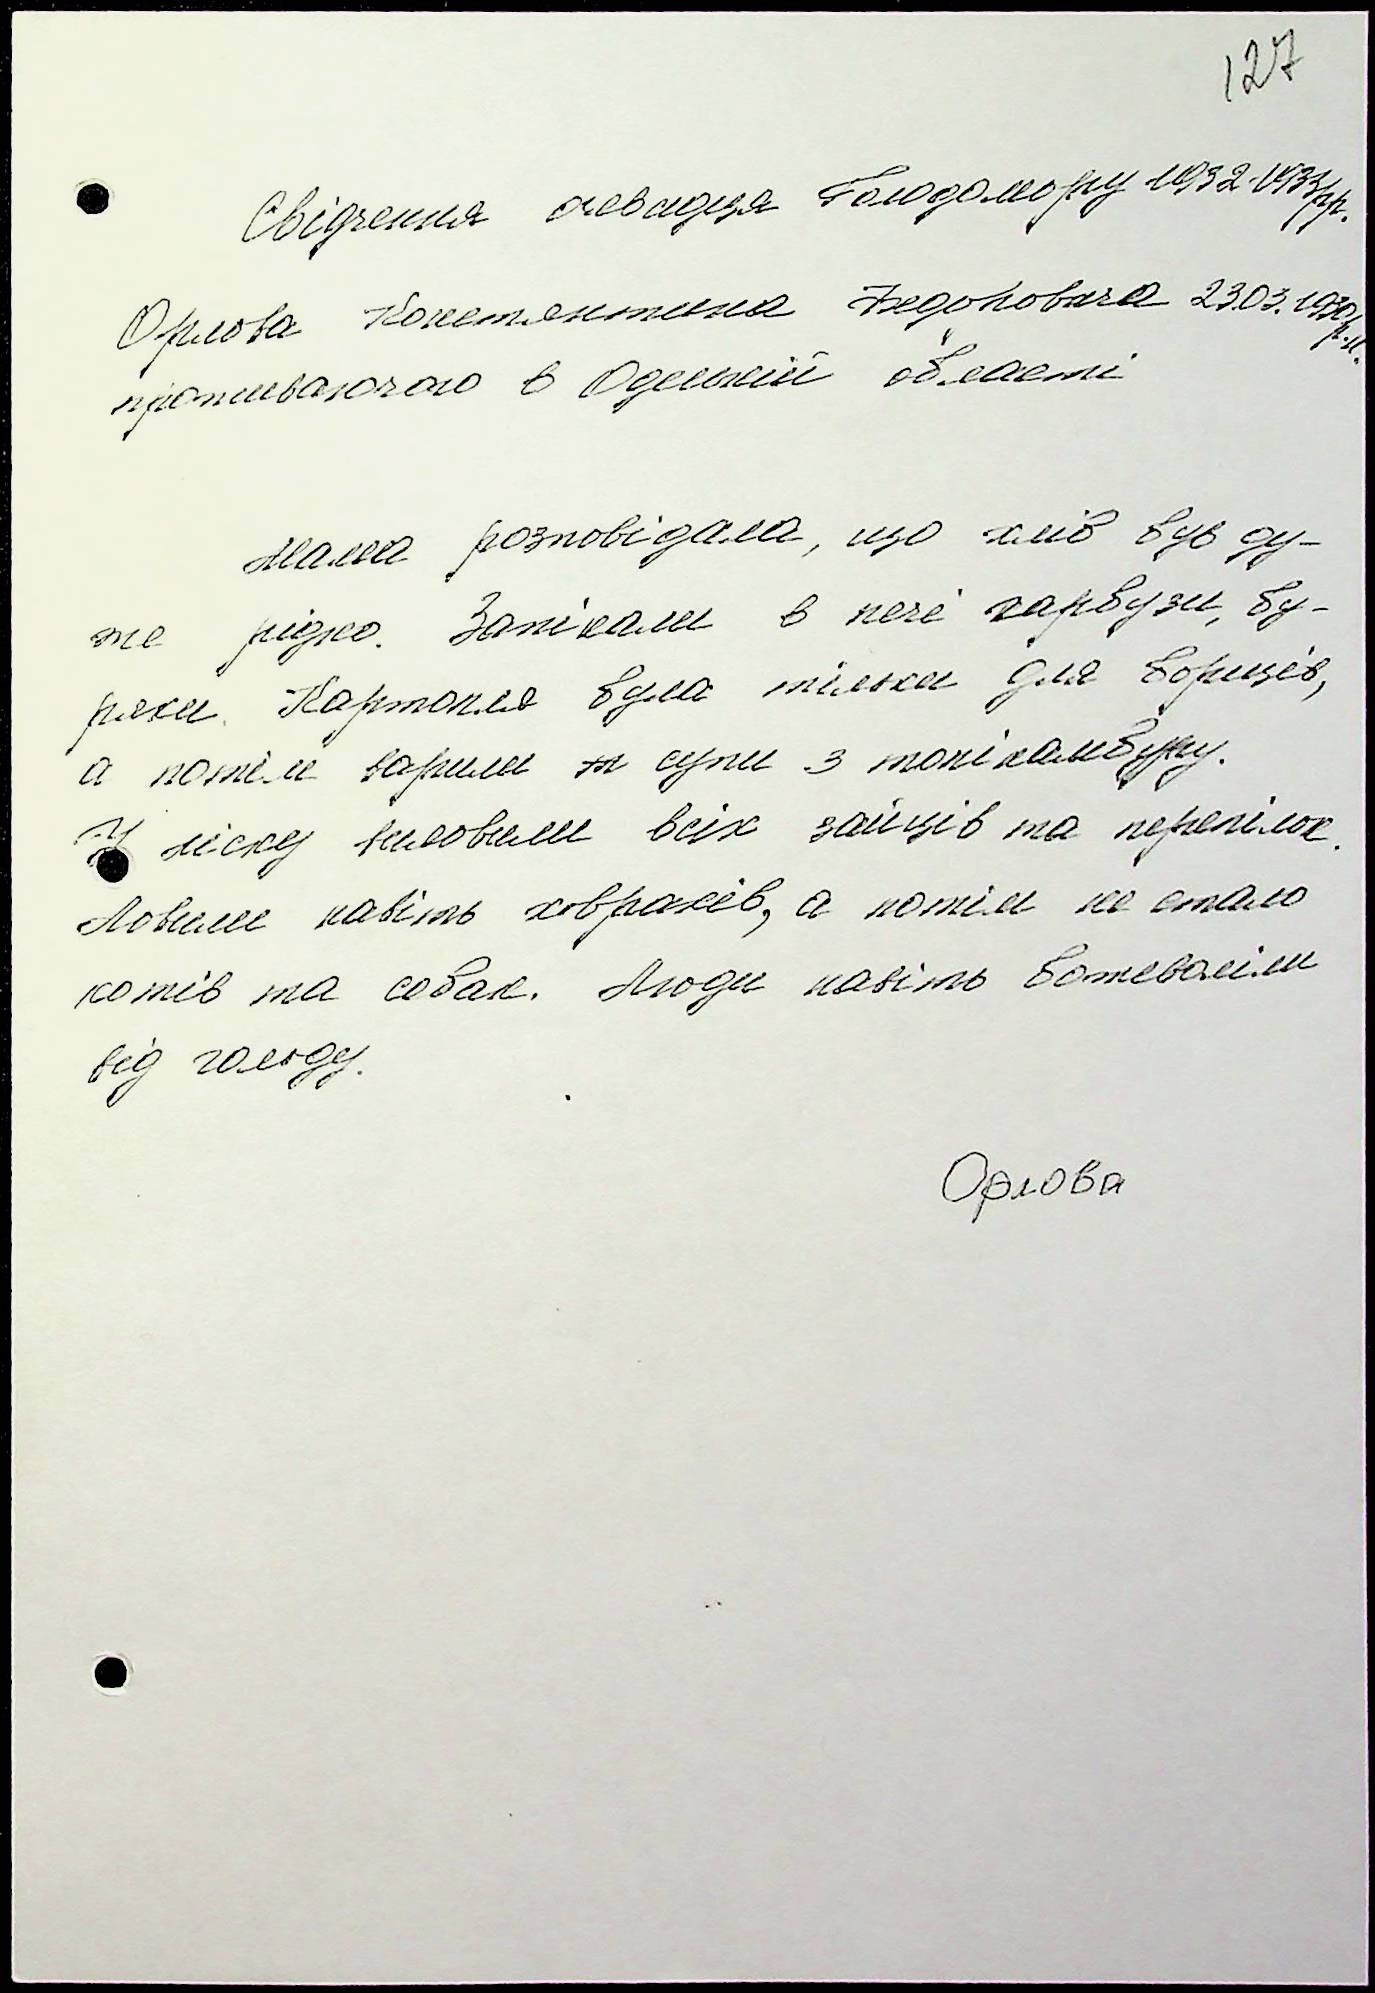 127
Свідчення очевидця Голодомору 1932-1933рр.
Орлова Константина Федоровича 23.03.1930р.н.
проживаючого в Одеській області
Мама розповідала, що хліб був ду-
же рідко. Запікали в печі гарбузи, бу-
ряки. Картопля була тільки для борщів,
а потім варили супи з топікамбуру.
У ліску виловили всіх зайців та перепілок.
Ловили навіть ховрахів, а потім не стало
котів та собак. Люди навіть божеволіли
від голоду.
Орлова